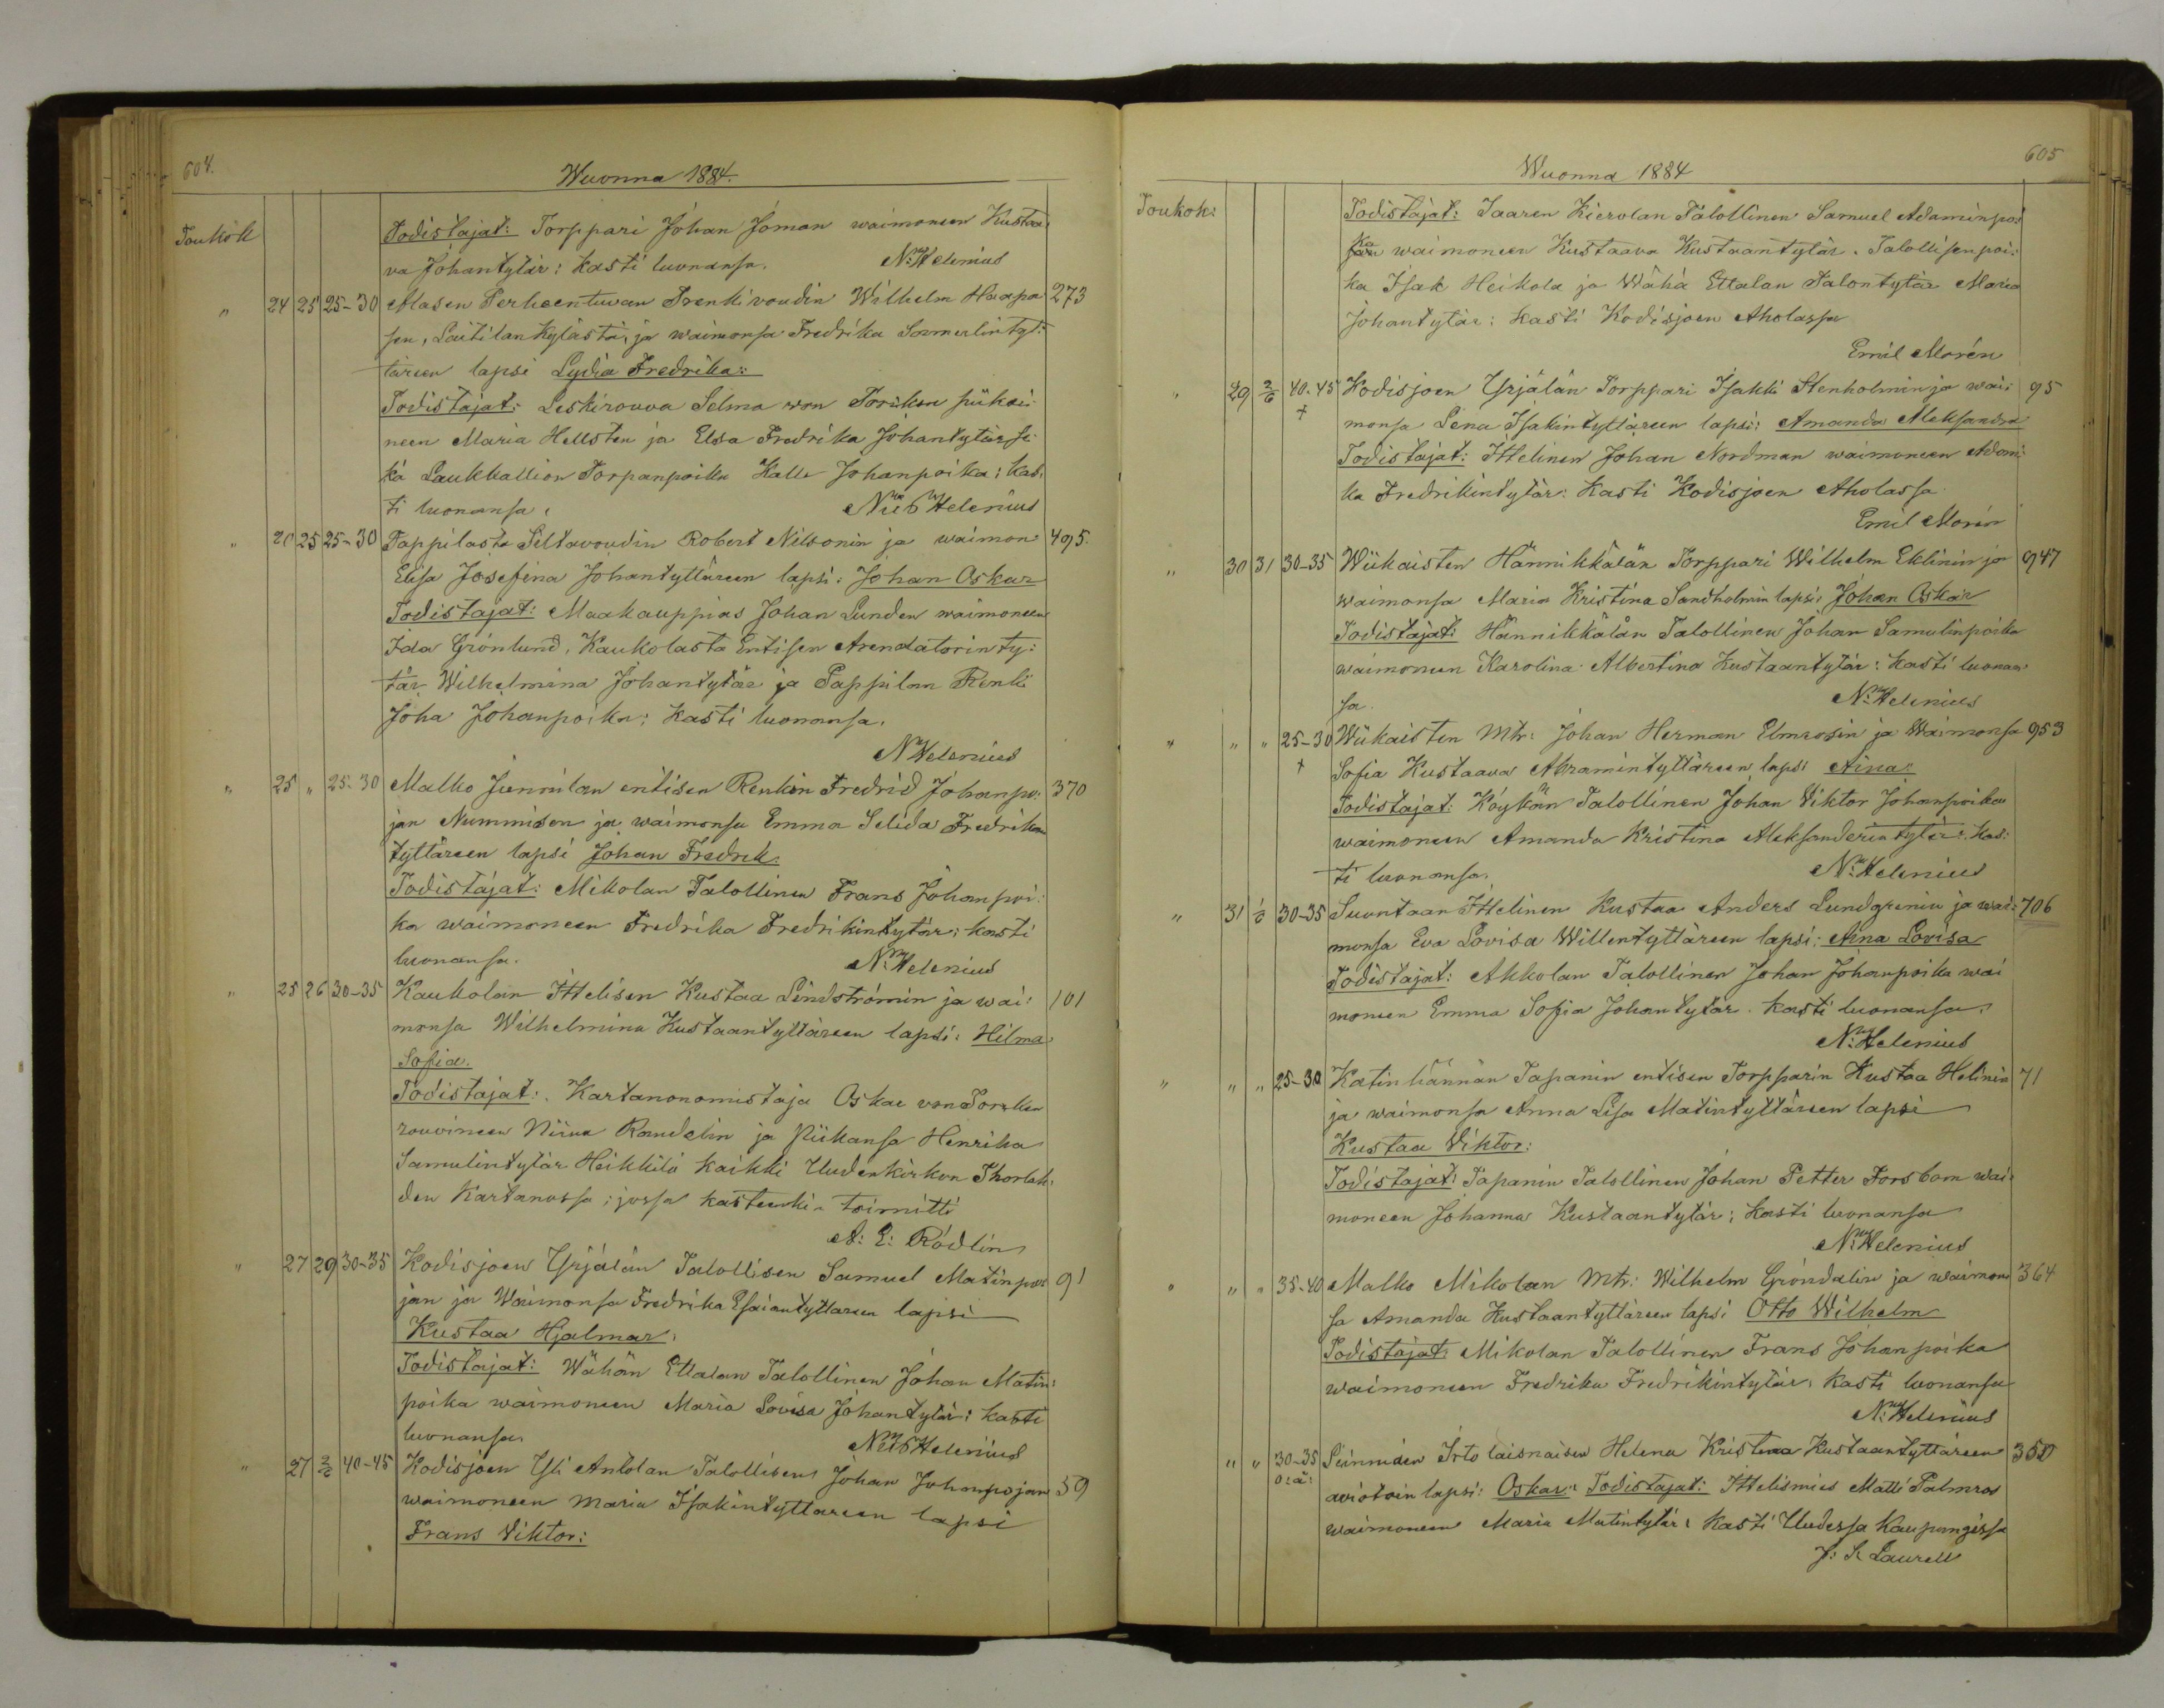 604.
Wuonna 1884.
Toukok
Todistajat: Torppari Johan Joman waimoneen Kustaa
va Johantytär: Kasti luonansa. N. Helenius
" 24 25 25-30 Masen Perheentuwan Trenkivoudin Wilhelm Haapa 273
sen, Laitilan Kylästä, ja waimonsa Fredrika Somerlintyt:
täreen lapsi Lydia Fredrika:
Todistajat: Leskirouva Selma von Torcken piikai
neen Maria Hellsten ja Elsa Fredrika Johantytär se
kä Laukkallion Torpanpoika Kalle Johanpoika: Kas:
ti luonansa. Nils Helenius
" 20 25 25-30 Pappilasta Siltavoudin Robert Nilsonin ja waimon 495.
Elisa Josefina Johantyttäreen lapsi: Johan Oskar
Todistajat: Maakauppias Johan Lunden waimoneen
Ida Grönlund, Kaukolasta Entisen Arendatorin ty:
tär Wilhelmina Johantytär ja Pappilan Renki
Joha Johanpoika: Kasti luonansa.
N Helenius
" 25 " 25-30 Malko Junnilan entisen Renkin Fredrid Johanpo: 370
jan Nummisen ja waimonsa Emma Selida Fredrikin
tyttäreen lapsi Johan Fredrik.
Todistajat: Mikolan Talollinen Frans Johanpoi:
ka waimoneen Fredrika Fredrikintytär: kasti
luonansa. N. Helenius
" 25 26 30-35 Kaukolan Ittelisen Kustaa Lindströmin ja wai: 101
monsa Wilhelmina Kustaantyttäreen lapsi: Hilma
Sofia.
Todistajat: Kartanonomistaja Oskar von Torcken
rouvineen Niina Randelin ja Piikansa Henrika
Samulintytär Heikkilä kaikki Uudenkirkon Thorlah:
den Kartanossa; jossa kasteenki toimitti
A: E: Rödlin
" 27 29 30-35 Kodisjoen Yrjälän Talollisen Samuel Matinpoi 91
jan ja Waimonsa Fredrika Esaiantyttäreen lapsi
Kustaa Hjalmar.
Todistajat: Wähän Ettalan Talollinen Johan Matin:
poika waimoneen Maria Lovisa Johantytär: Kasti
luonansa. Nils Helenius
" 27 2/6 40-45 Kodisjoen Yli Antolan Talollisen Johan Johanpojan 59
waimoneen Maria Isakintyttäreen lapsi
Frans Viktor:
605
Wuonna 1884
Toukok:
Todistajat: Saaren Kierolan Talollinen Samuel Adaminpoi
ka waimoneen Kustaava Kustaantytär. Talollisenpoi:
ka Isak Heikola ja Wähä Ettalan Talontytär Maria
Johantytär: Kasti Kodisjoen Aholassa
Emil Morén
" 29 2/6 40-45 Kodisjoen Yrjälän Torppari Isakki Stenholmin ja wai: 95
+ monsa Lena Isakintyttäreen lapsi: Amanda Aleksandra
Todistajat: Ittelinen Johan Nordman waimoneen Adami
ka Fredrikintytär: Kasti Kodisjoen Aholassa
Emil Morén
" 30 31 30-35 Wiikaisten Hännikkälän Torppari Wilhelm Eklinin ja 947
waimonsa Maria Kristina Sandholmin lapsi, Johan Oskar
Todistajat: Hännikkälän Talollinen Johan Samulinpoika
waimoneen Karolina Albertina Kustaantytär: Kasti luonan:
sa. N. Helenius
" " " 25-30 Wiikaisten Mtr: Johan Herman Elmrosin ja Waimonsa 953
+ Sofia Kustaava Abramintyttäreen lapsi Aina:
Todistajat: Köykän Talollinen Johan Viktor Johanpoika
waimoneen Amanda Kristina Aleksanderintytär: Kas:
ti luonansa. N. Helenius
" 31 1/6 30-35 Suontaan Ittelinen Kustaa Anders Lundgrenin ja wai: 706
monsa Eva Lovisa Willentyttäreen lapsi: Aina Lovisa
Todistajat: Akkolan Talollinen Johan Johanpoika wai
moneen Emma Sofia Johantytär. kasti luonansa.
N. Helenius
" " " 25-30 Katinhännän Tapanin entisen Torpparin Kustaa Helinin 71
ja waimonsa Anna Lisa Matintyttäreen lapsi
Kustaa Viktor:
Todistajat: Tapanin Talollinen Johan Petter Forsbom wai:
moneen Johanna Kustaantytär; Kasti luonansa
N. Helenius
" " " 35-40 Malko Mikolan Mtr: Wilhelm Gröndalin ja waimon 364
sa Amanda Kustaantyttäreen lapsi Otto Wilhelm
Todistajat: Mikolan Talollinen Frans Johanpoika
waimoneen Fredrika Fredrikintytär. Kasti luonansa
N. Helenius
" " 30-35 Irtolaisnaisen Helena Kristina Kustaantyttäreen 350
o: ä: aviotoin lapsi: Oskar: Todistajat: Ittelismies Matti Palmros
waimoneen Maria Matintytär: Kasti Uudessa Kaupungissa
J: S Laurell